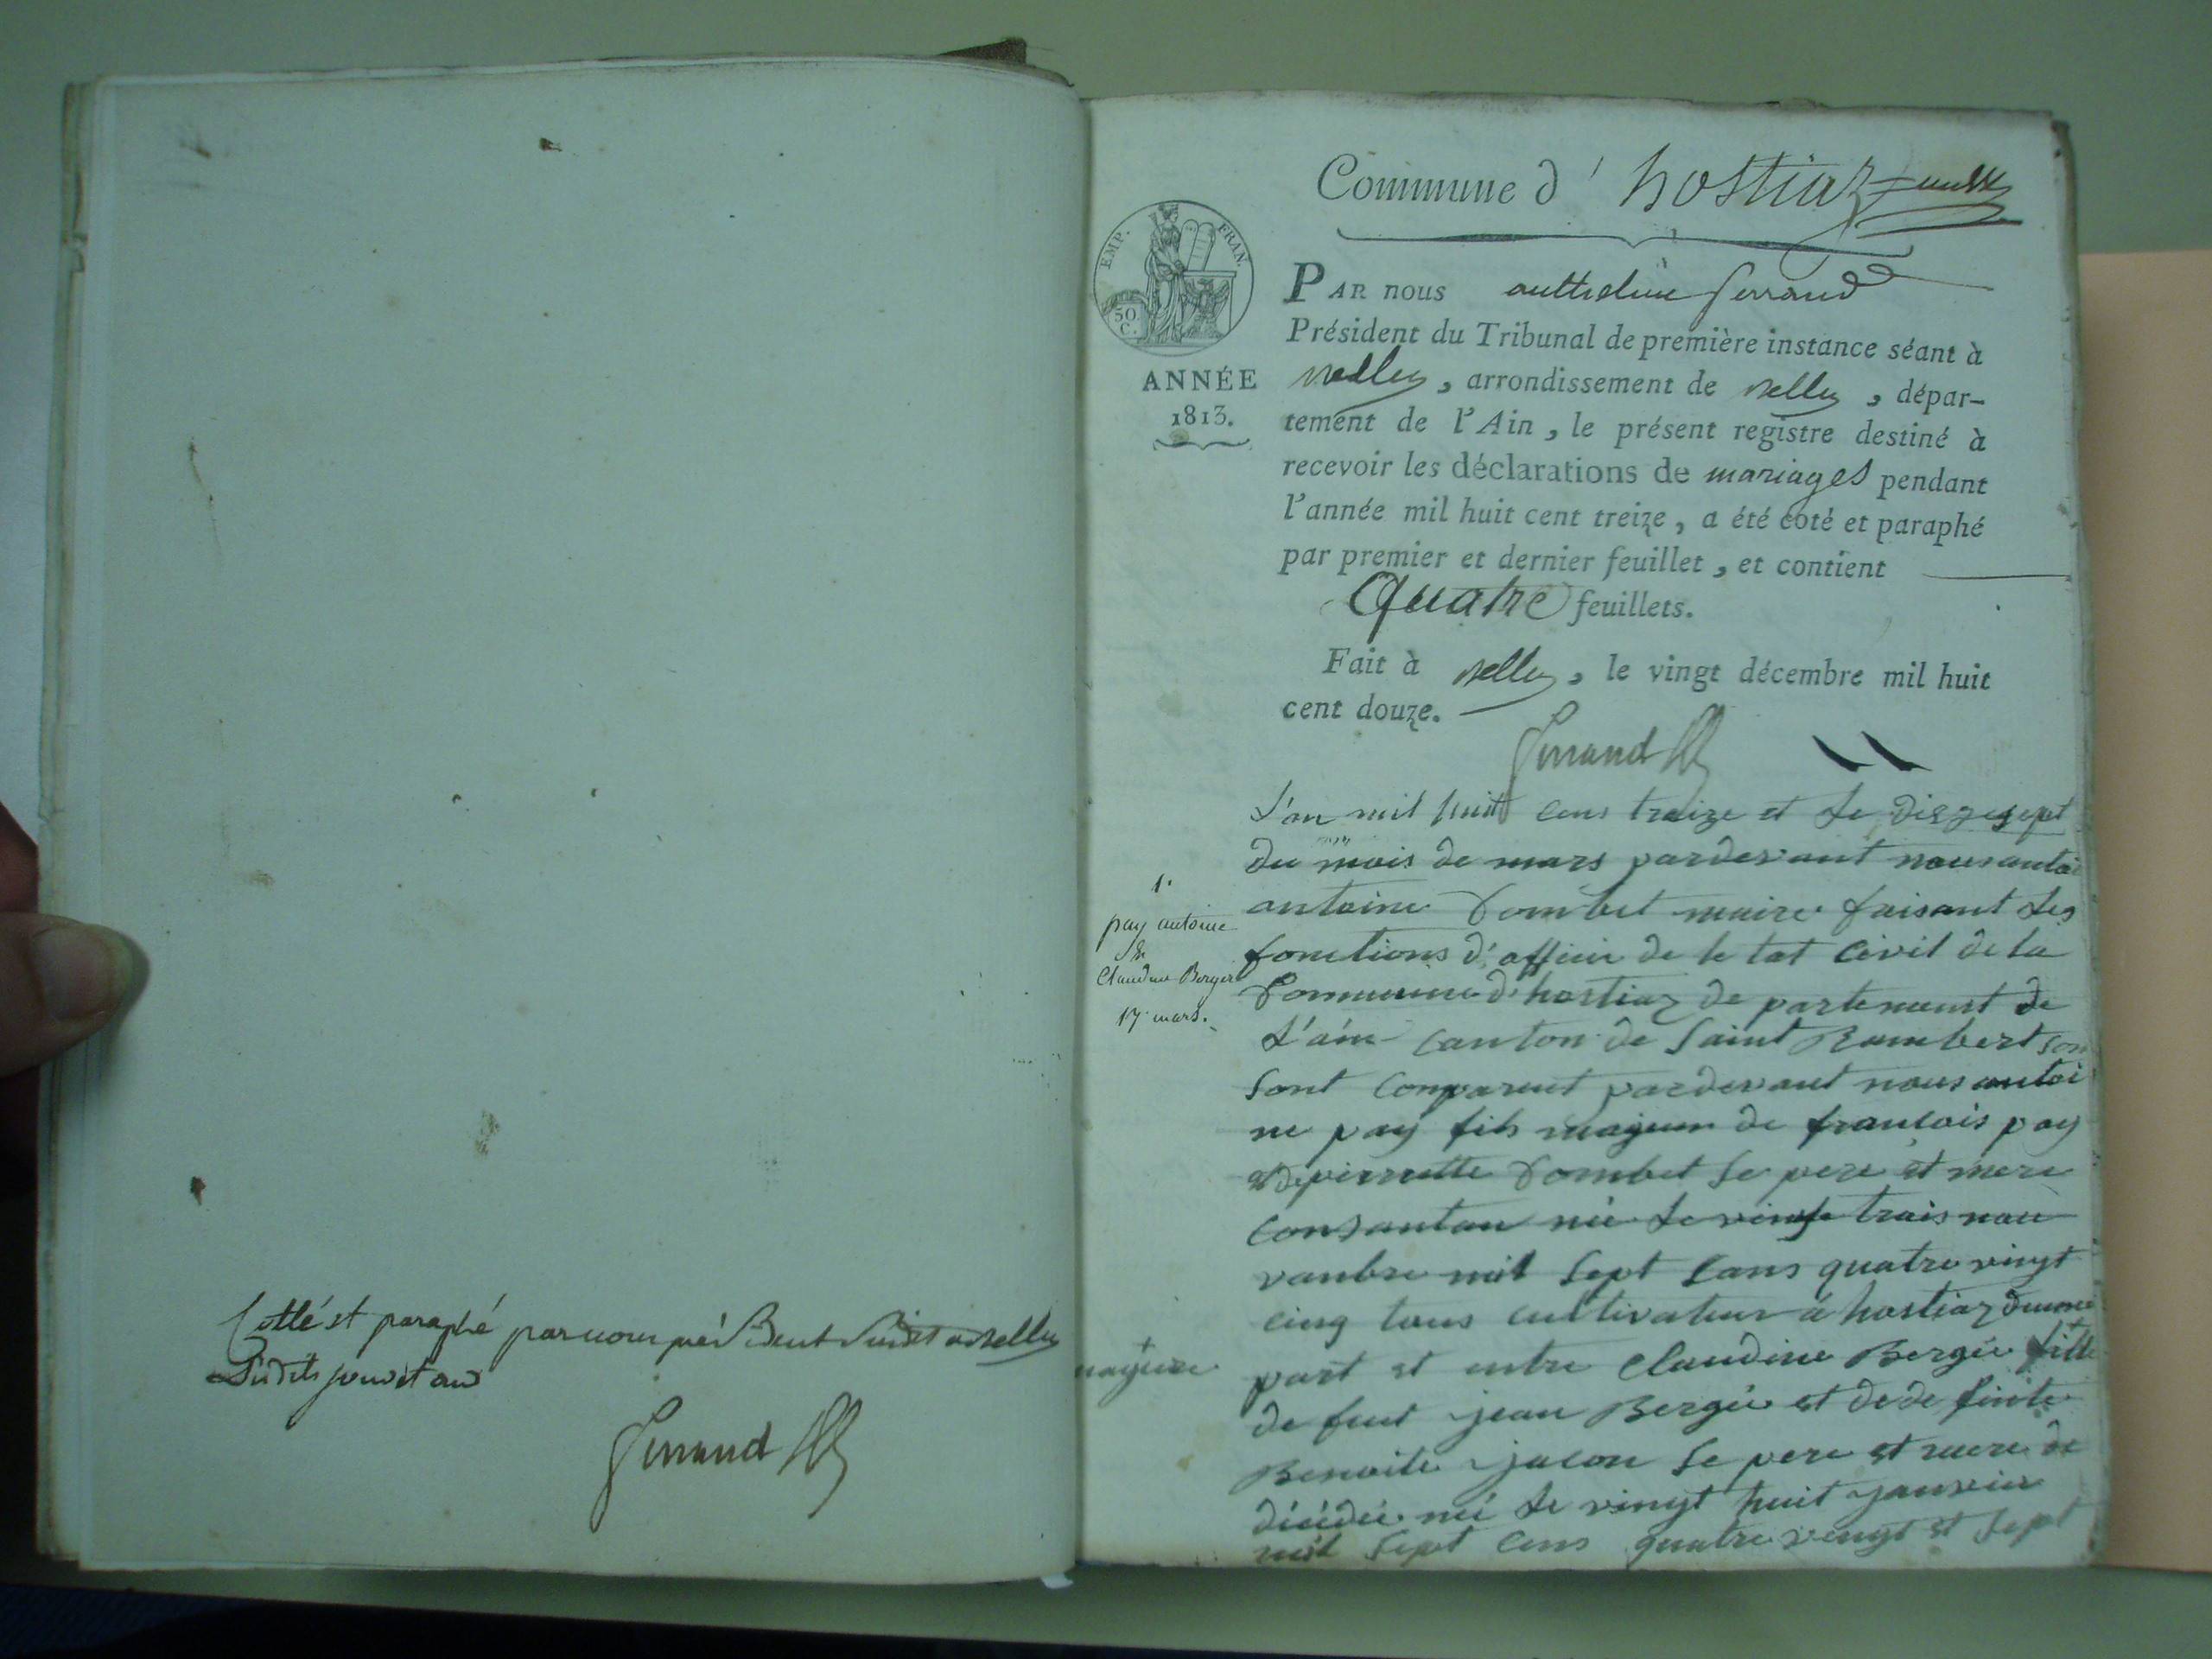 Cotté et paraphé par nous president susdit a Belley
Lesdits jour et an
Ferrand
Commune d'hostiaz
EMP. FRAN.
50.
C.
ANNÉE
1813.
PAR nous anthelme ferrand
Président du Tribunal de première instance séant à
Belley, arrondissement de Belley, dépar-
tement de l'Ain, le présent registre destiné à
recevoir les déclarations de mariages pendant
l'année mil huit cent treize, a été coté et paraphé
par premier et dernier feuillet, et contient
Quatre feuillets.
Fait à Belley, le vingt décembre mil huit
cent douze.
Ferrand
1.
pay antoine
&
Claudine Berger
17 mars.
L'an mil huit cens treize et le dizzesept
du mois de mars pardevant nous antoi
antoine Combet maire faisant les
fonctions d'officier de le tat Civil de la
Commune d'hostiaz de partement de
L'ain Canton de Saint Rambert son
sont Comparent pardevant nous antoi
ne pay fils mageur de francois pay
et de pierrette Combet se pere et mere
Consantan née le vingt trais nou
vanbre mil sept sans quatre vingt
cinq tous cultivateur a hostiaz d'unne
mageure
part et entre Claudine Bergée fille
de feut jean Bergée et de de finte
Benoite jacon se pere et mere de
décédée née le vingt huit janvier
mil sept cens quatre vingt et sept